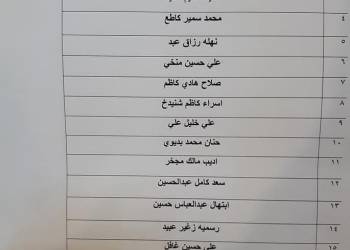 محمد سمير كاطع ٤
نهله رزاق عبد ٥
علي حسين منخي ٦
صلاح هادي كاظم ٧
اسراء كاظم شنيدخ ٨
علي خليل علي ٩
حنان محمد بديوي ١٠
اديب مالك مجخر ١١
سعد كامل عبدالحسين ١٢
ابتهال عبدالعباس حسين ١٣
رسميه زغير عبيد ١٤
علي حسين غافل ١٥